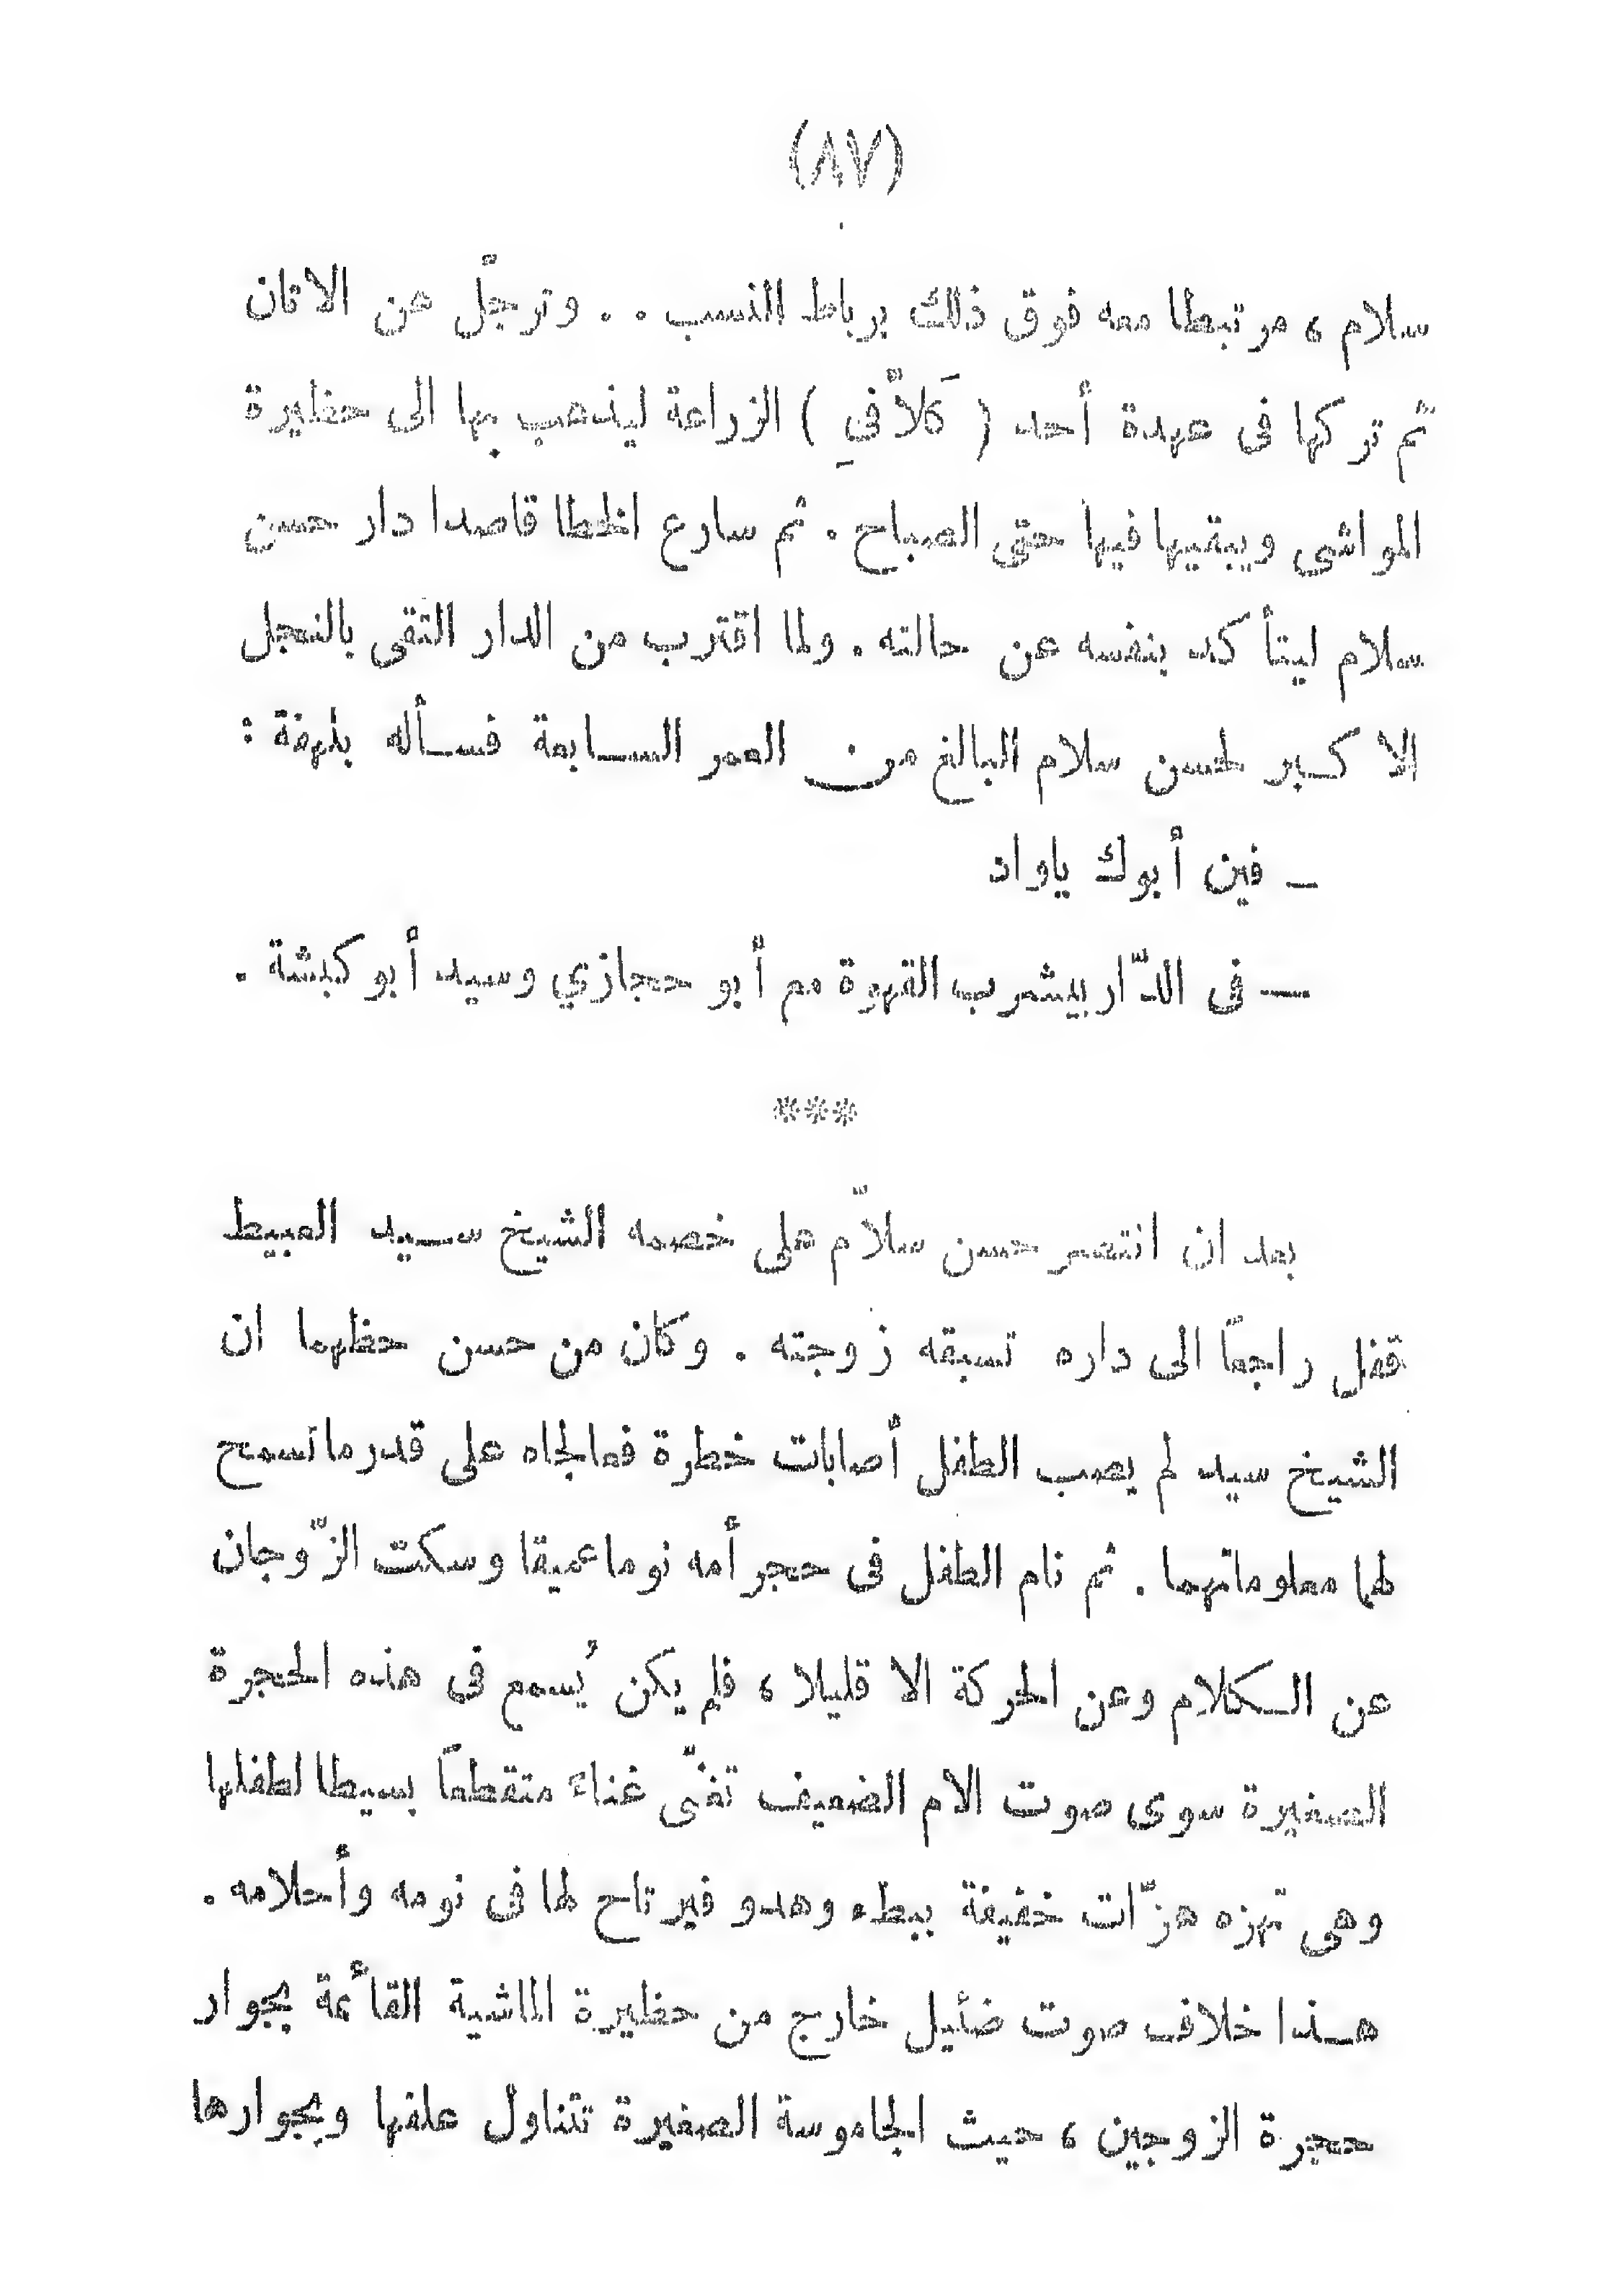 (٨٧)
سلام ، مرتبطا معه فوق ذلك برباط النسب . . وترجّل عن الاتان
ثم تركها فى عهدة أحد ( كَلاّفىِ ) الزراعة ليذهب بها الى حظيرة
المواشى ويبقيها فيها حتى الصباح . ثم سارع الخطا قاصدا دار حسن
سلام ليتأكد بنفسه عن حالته . ولما اقترب من الدار التقى بالنجل
الاكبر لحسن سلام البالغ من العمر السابعة فسأله بلهفة :
— فين أبوك ياواد
— فى الدّار بيشرب القهوة مع أبو حجازي وسيد أبو كبشة .
***
بعد ان انتصر حسن سلاّم على خصمه الشيخ سيد العبيط
قفل راجعاً الى داره تسبقه زوجته . وكان من حسن حظهما ان
الشيخ سيد لم يصب الطفل أصابات خطرة فعالجاه على قدر ماتسمح
لهما معلوماتهما . ثم نام الطفل فى حجر أمه نوما عميقا وسكت الزّوجان
عن الكلام وعن الحركة الا قليلا ، فلم يكن يُسمع فى هذه الحجرة
الصغيرة سوى صوت الام الضعيف تغنّى غناء متقطعاً بسيطا لطفلها
وهى تهزه هزّات خفيفة ببطء وهدو فيرتاح لها فى نومه وأحلامه .
هذا خلاف صوت ضئيل خارج من حظيرة الماشية القائمة بجوار
حجرة الزوجين ، حيث الجاموسة الصغيرة تتناول علفها وبجوارها